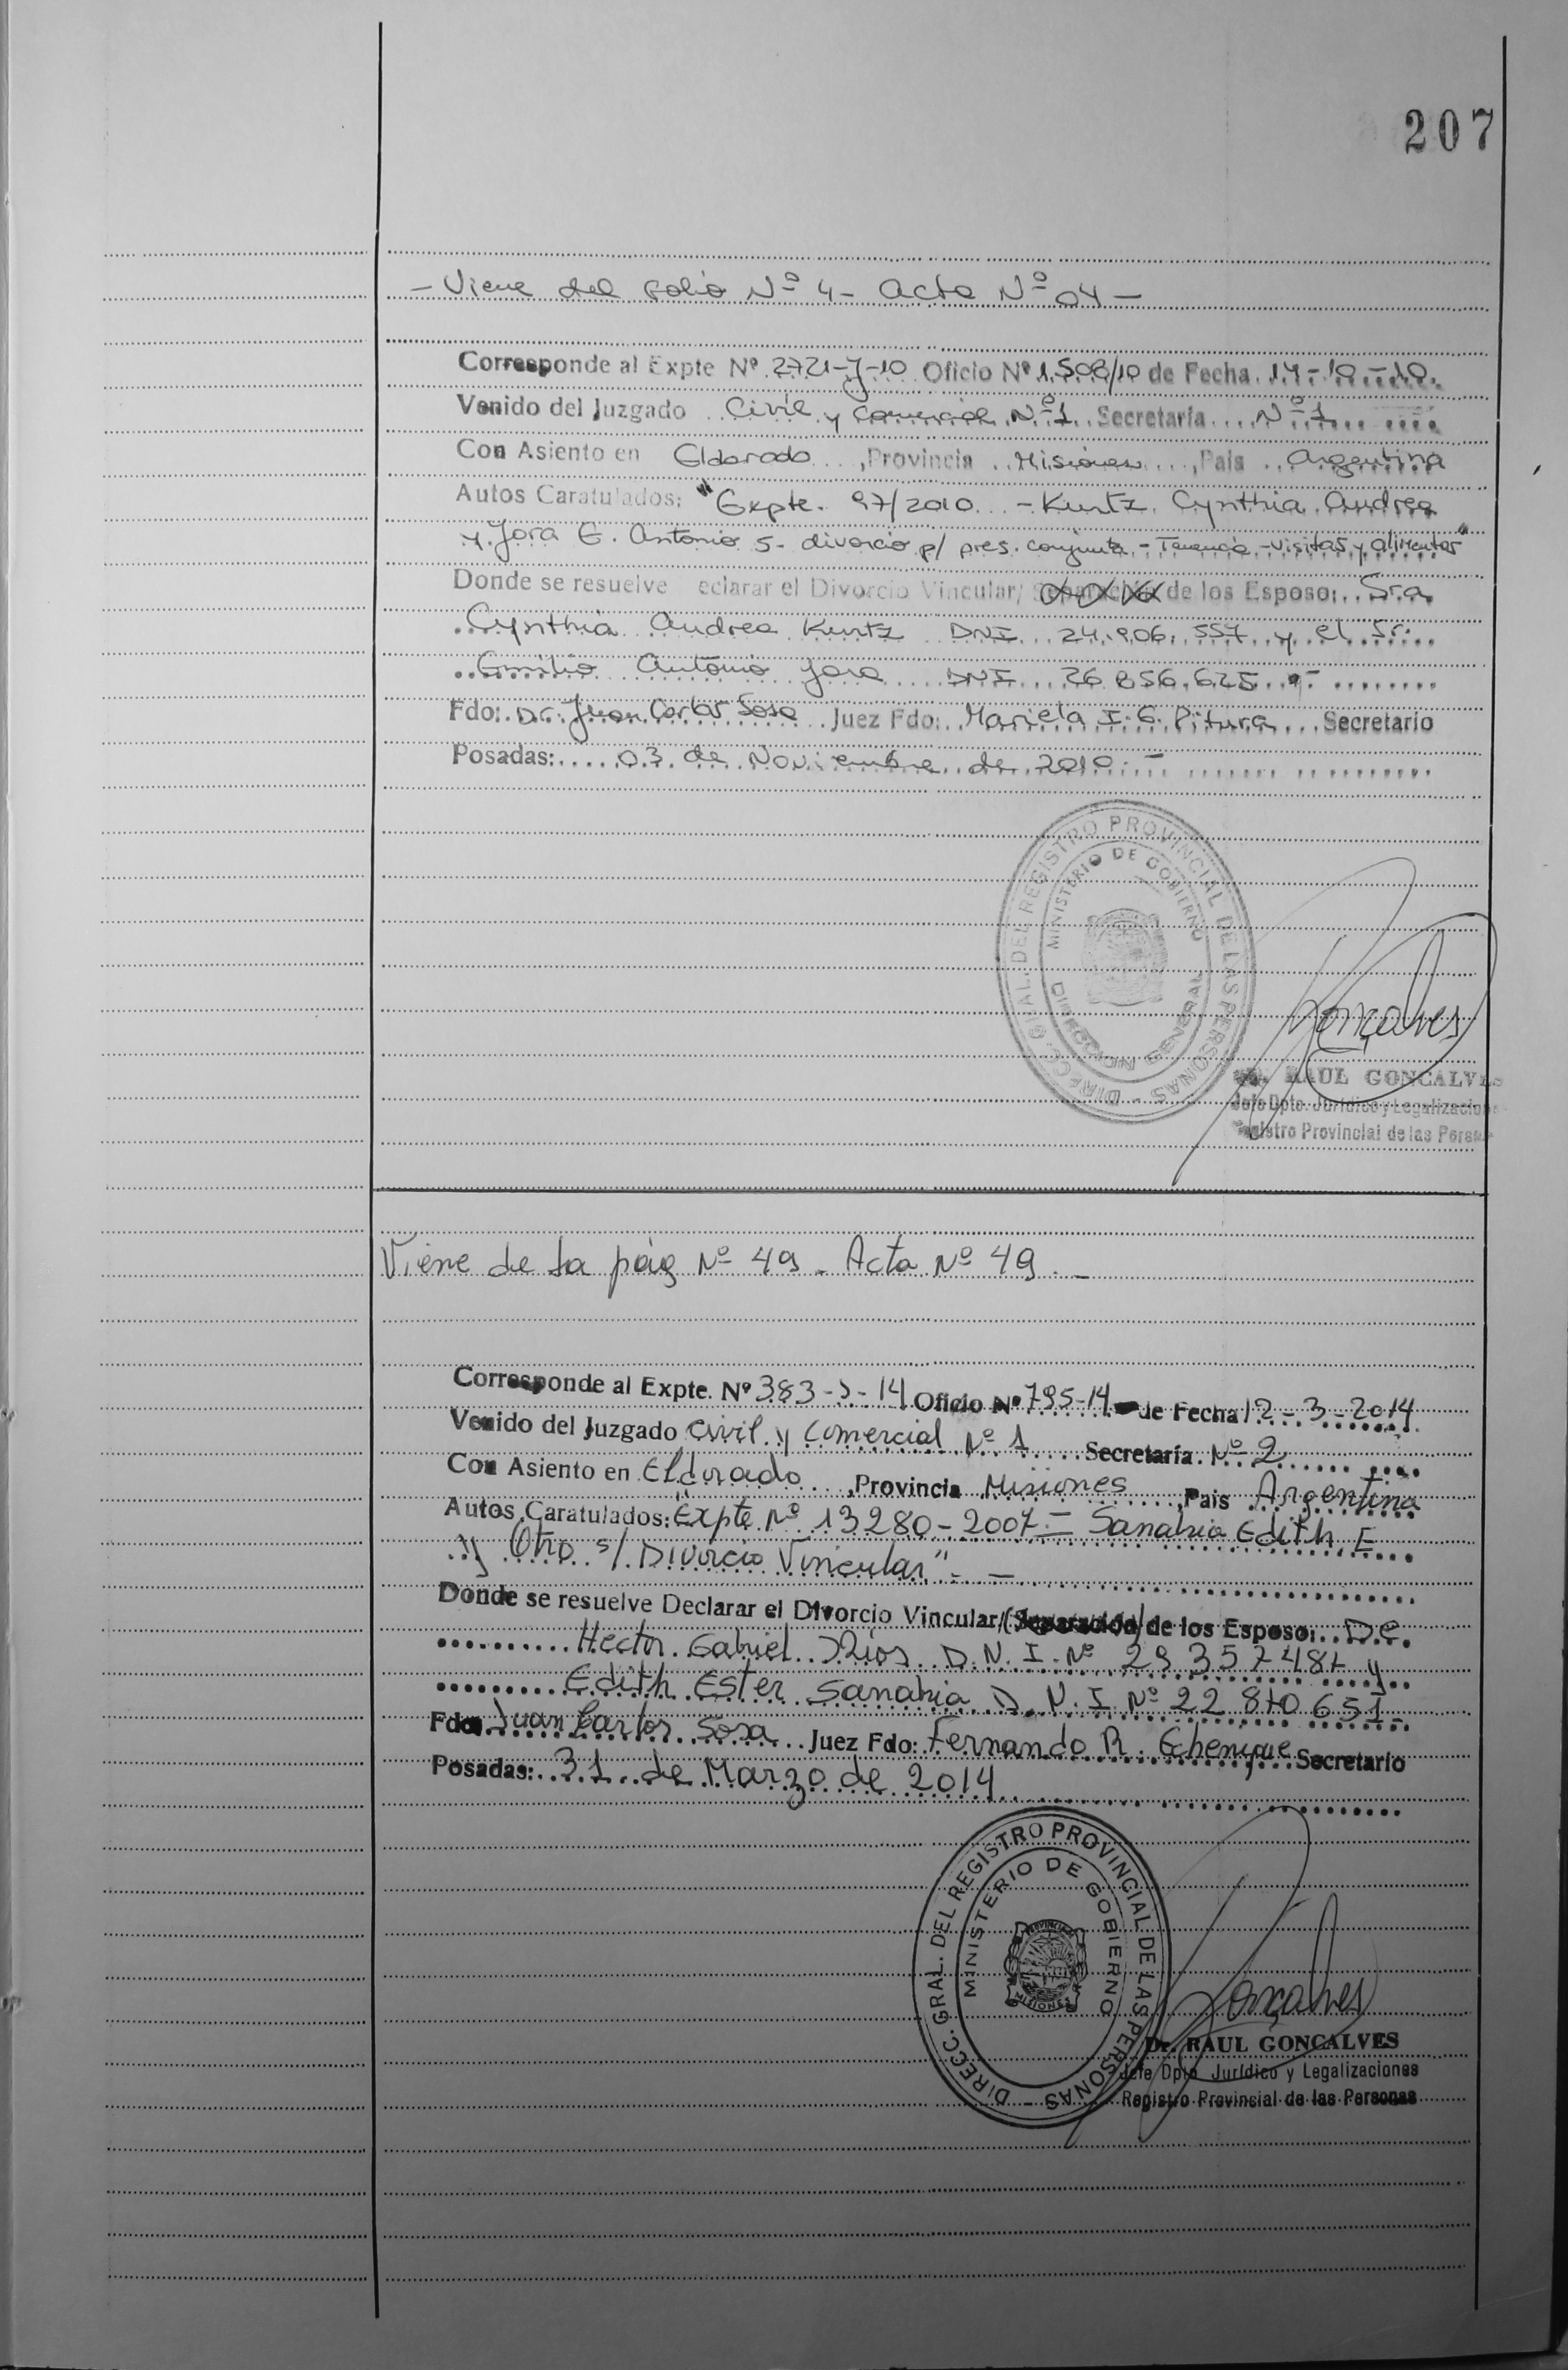 207
- Viene del folio Nº 4 - Acta Nº 04 -
Corresponde al Expte Nº 2721-J-10 Oficio Nº 1.508/10 de Fecha 14-10-10.
Venido del Juzgado Civil y Comercial Nº 1 Secretaría Nº 1
Con Asiento en Eldorado, Provincia Misiones, País Argentina
Autos Caratulados: "Expte. 97/2010 - Kurtz Cynthia Andrea
y Jara E. Antonio s- divorcio p/ pres. conjunta - Tenencia - Visitas y alimentos"
Donde se resuelve eclarar el Divorcio Vincular/ Separación de los Esposo: Sra.
Cynthia Andrea Kurtz DNI 24.906.557 y el Sr.
Emilio Antonio Jara DNI 26.856.625.-
Fdo: Dr. Juan Carlos Sosa Juez Fdo: Mariela I. G. Pitura Secretario
Posadas: 03 de Noviembre de 2010.-
DIRECC. GRAL. DEL REGISTRO PROVINCIAL DE LAS PERSONAS -
MINISTERIO DE GOBIERNO
DIRECCION GENERAL
Goncalves
RAUL GONCALVES
Jefe Dpto. Jurídico y Legalizacion
Registro Provincial de las Person
Viene de la pág Nº 49 - Acta Nº 49. -
Corresponde al Expte. Nº 383-J-14 Oficio Nº 795-14 de Fecha 12-3-2014
Venido del Juzgado Civil y Comercial Nº 1 Secretaría Nº 2
Con Asiento en Eldorado, Provincia Misiones, País Argentina
Autos Caratulados: "Expte Nº 13280-2007 = Sanabria Edith E.
y Otro s/ Divorcio Vincular".- -
Donde se resuelve Declarar el Divorcio Vincular/(Separación) de los Esposo: De
Hector Gabriel Rios D.N.I. Nº 29357487 y
Edith Ester Sanabria D.N.I Nº 22870651-
Fdo: Juan Carlos Sosa Juez Fdo: Fernando R. Echenique Secretario
Posadas: 31 de Marzo de 2014
DIRECC. GRAL. DEL REGISTRO PROVINCIAL DE LAS PERSONAS -
MINISTERIO DE GOBIERNO
MISIONES
Goncalves
Dr. RAUL GONCALVES
Jefe Dpto Jurídico y Legalizaciones
Registro Provincial de las Personas